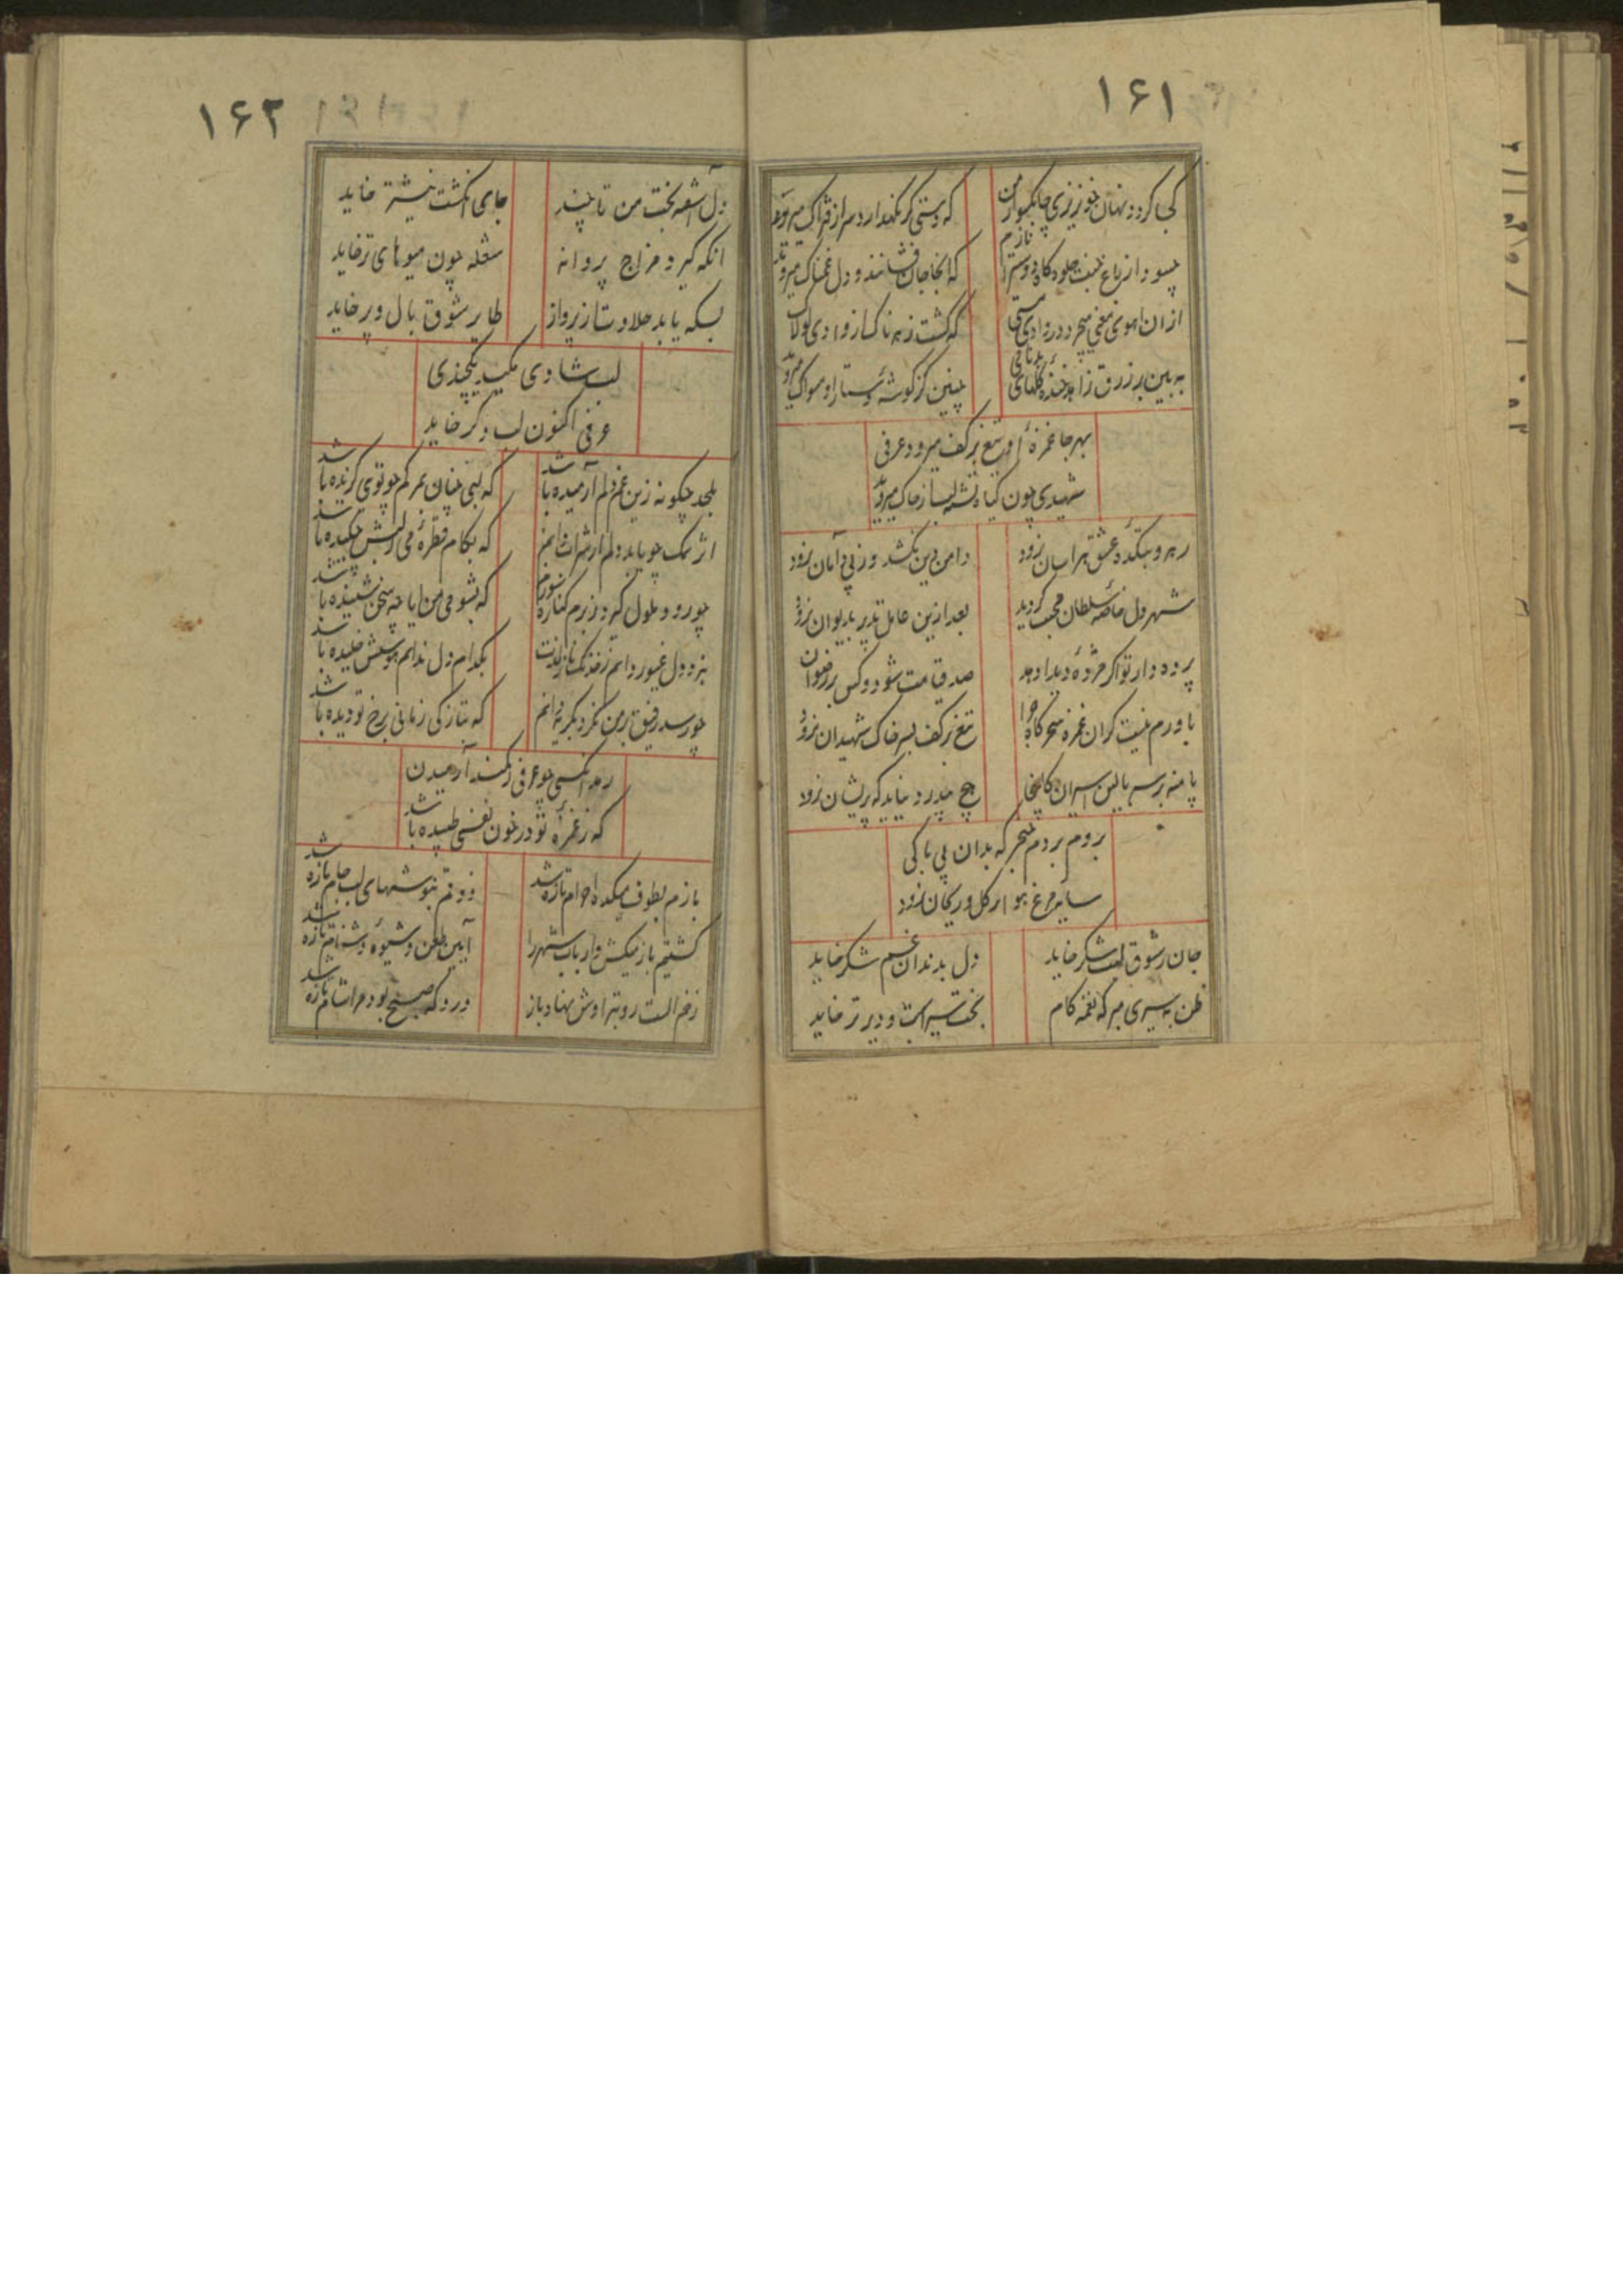 ۱۶۱
کجا گردد نهان خونریزی چابکسوار من
که دستی گر نگهدارد سر از فتراک میروید
چسود از باغ جنت جلوه‌گاه دوست را نازم
که آنجا جان فشانند و دل غمناک میروید
از آن آهوی معنی میچرد در وادی مستی
که گشت زهرناکسازوادی
به بین بر زرق زاهد خنده گلهای بدنامی
چنین کز گوشه دستار او مسواک میروید
بهر جا غمزهٔ او تیغ بر کف میرود عرفی
شهیدی چون گیاه تشنه لب از خاک میروید
رهرو میکدهٔ عشق هراسان نرود
دامن دین نکشد وز پی ایمان نرود
شهر دل خاصهٔ سلطان محبت گردید
بعد ازین عامل تدبیر بدیوان نرود
پرده‌دار تو اگر مژدهٔ دیدار دهد
صد قیامت شود و کس بر رضوان نرود
باورم نیست کزان غمزه سحرگاه جزا
تیغ بر کف بسر خاک شهیدان نرود
پا منه بر سر بالین اسیران کاینجا
هیچ بیدرد نیاید که پریشان نرود
بروم بر دم خنجر که بدان بی باکی
سایه مرغ هوا بر گل و ریحان نرود
جان ز شوق لبت شکر خاید
دل بدندان غم شکر خاید
ظن به سیری مبر که نغمه کام
بخت سیر است و دیرتر خاید
۱۶۲
دل آشفته بخت من تا چند
جای انگشت نیشتر خاید
آنکه گیرد مزاج پروانه
شعله چون میوهای تر خاید
بسکه یابد حلاوت از پرواز
طایر شوق بال و پر خاید
لب شادی مکید یکچندی
عرفی اکنون لب دگر خاید
بلحد چگونه زین غم دلم آرمیده باشد
که لبی چنان بمرگم چو توی گزیده باشد
اثر نمک چو یابد دلم از شراب دانم
که بکام قطرهٔ می ز لبش چکیده باشد
چو رود ملول گه در بزم کناره شورم
که بشومی من آیا چه سخن شنیده باشد
بنزد دل غیور دانم ز خدنگ ناز لذت
بکدام دل ندانم هوسش خلیده باشد
چو رسد رفیق بر من نگرد بگریه دانم
که بتازگی زمانی برخ تو دیده باشد
رمد آنکسی چو عرفی ز کمند آرمیدن
که ز غمزهٔ تو در خون نفسی طپیده باشد
بازم بطوف میکده احرام تازه شد
ذوقم بنوشهای لب جام تازه شد
گشتیم باز میکش و ارباب شهر را
آیین طعن و شیوهٔ دشنام تازه شد
زخم الست رو بتراوش نهاد باز
درد که صبح بود مرا شام تازه شد